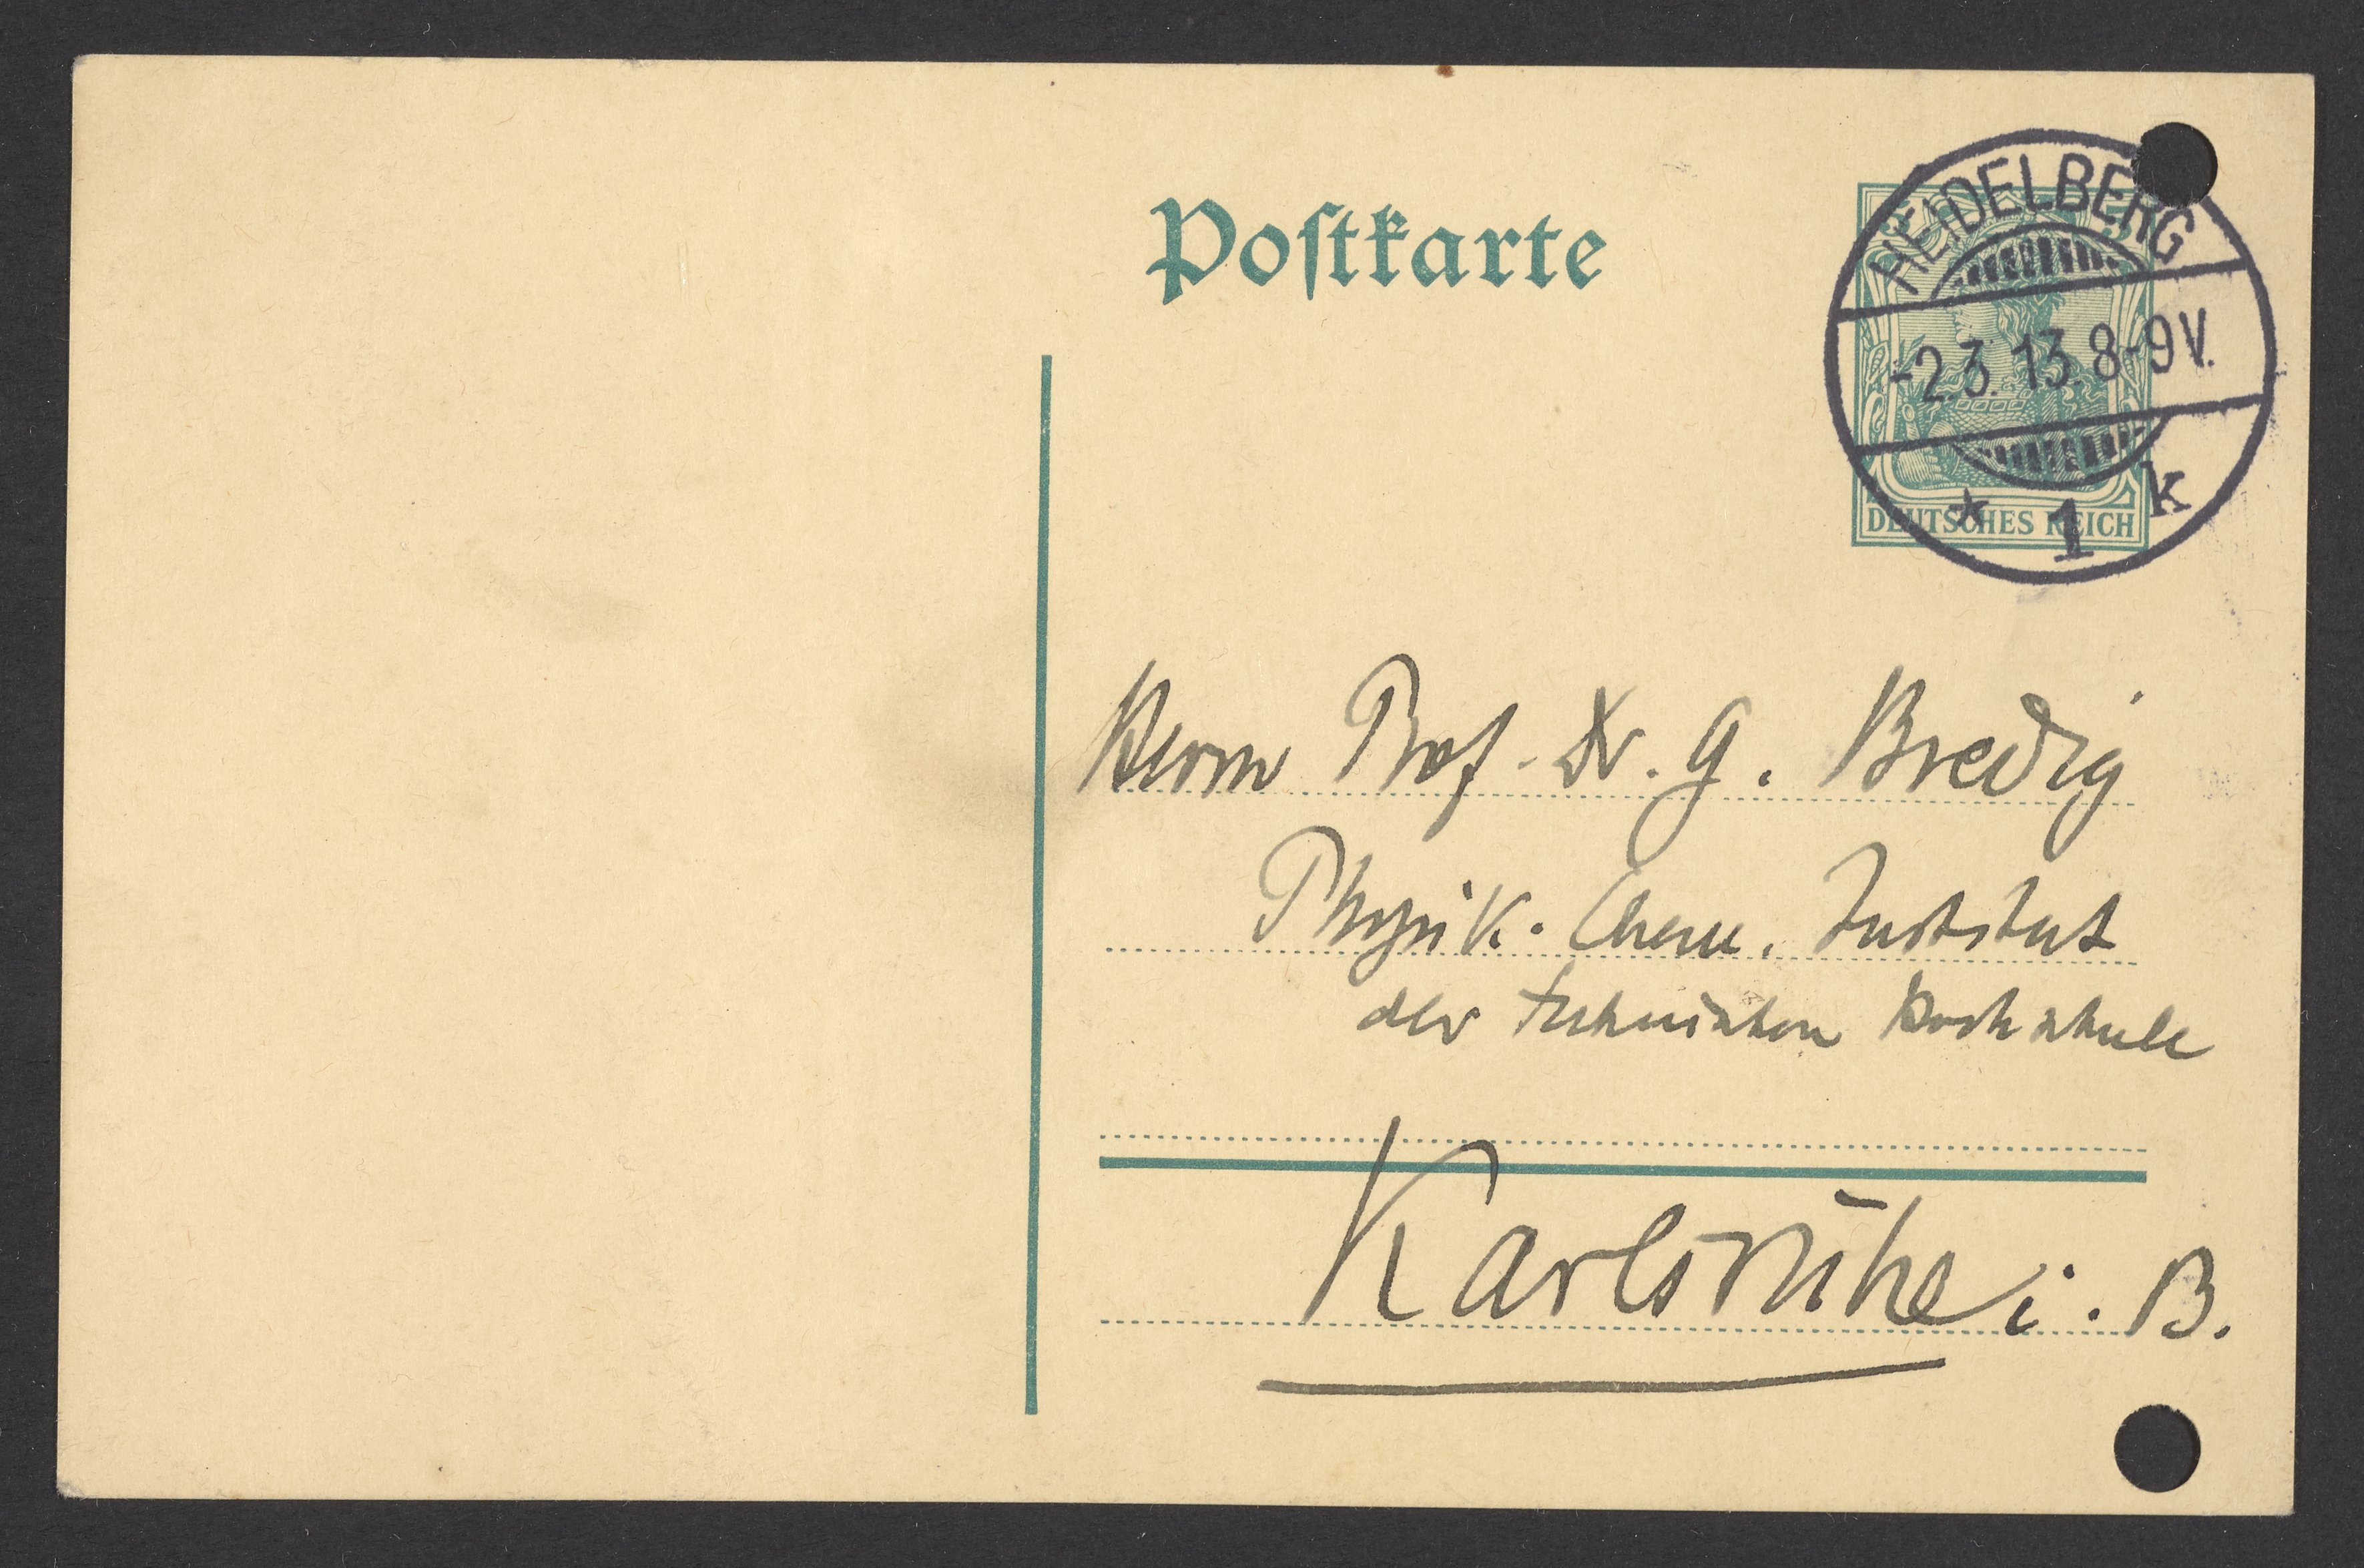 Postkarte
HEIDELBERG
-2.3.13.8-9V.
* 1 k
DEUTSCHES REICH
Herrn Prof. Dr. G. Bredig
Physik. Chem. Institut
der technischen Hochschule
Karlsruhe i. B.